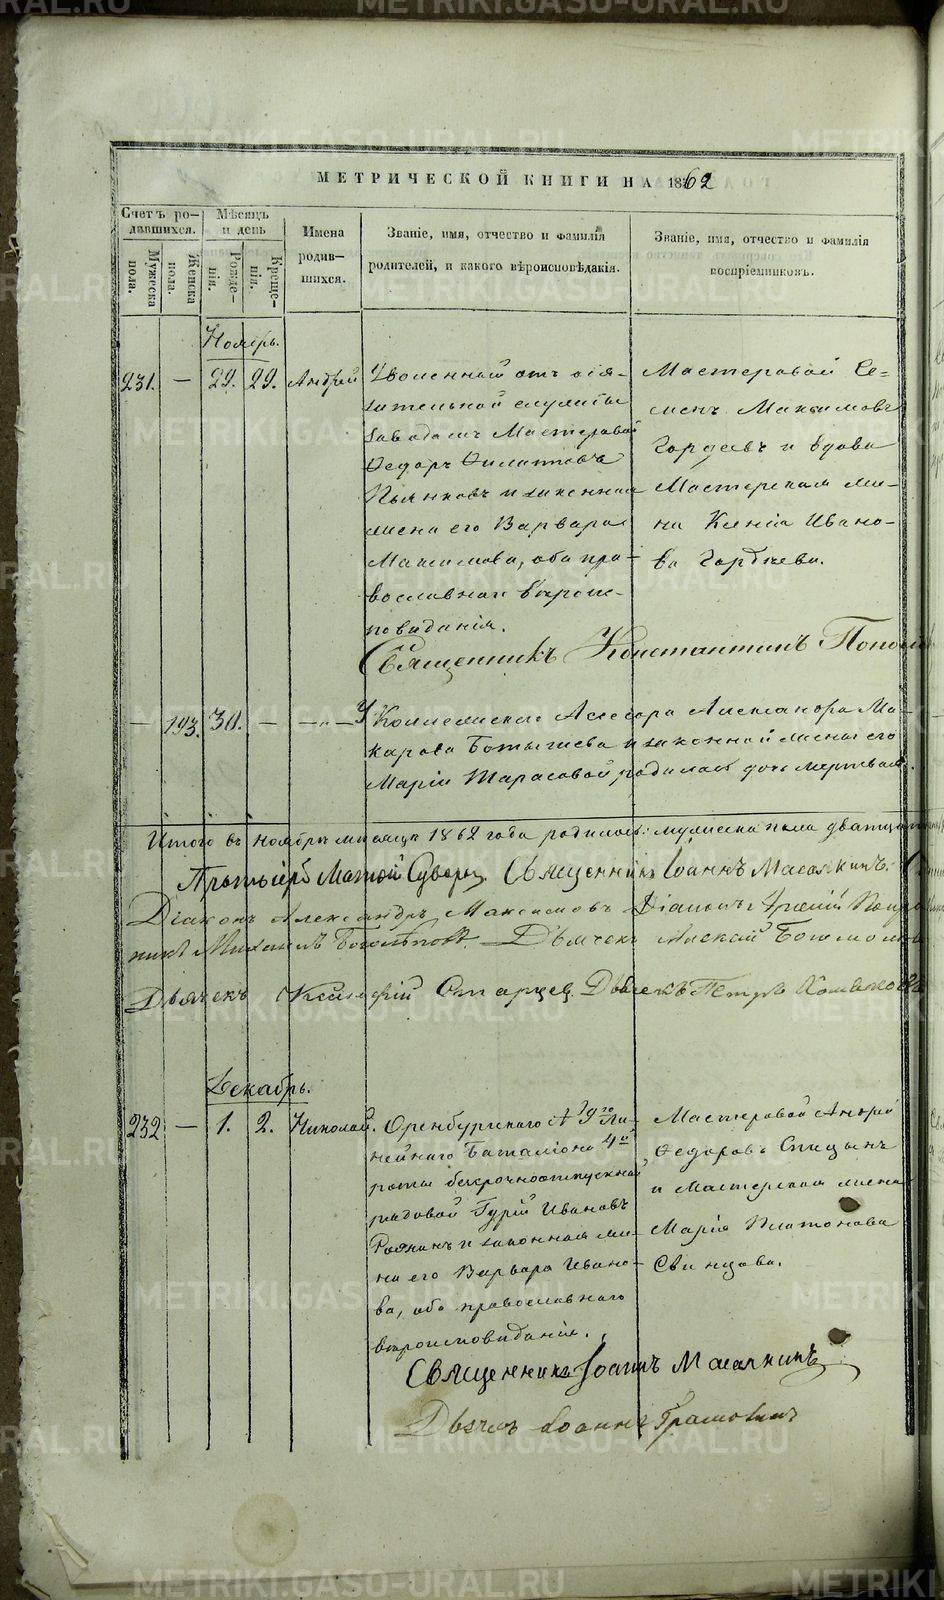 МЕТРИЧЕСКОЙ КНИГИ НА 1862
Счетъ ро-
дившихся.
Мужеска пола.
Женска пола.
Мѣсяцъ
и день
Рожде-
нія.
Креще-
нія.
Имена
родив-
шихся.
Званіе, имя, отчество и фамилія
родителей, и какого вѣроисповѣданія.
Званіе, имя, отчество и фамилія
воспріемниковъ.
Ноябрь.
231. — 29. 29. Андрей
Уволенный отъ обя-
зательной службы
заводамъ Мастеровой
Ѳедоръ Филатовъ
Пьянковъ и законная
жена его Варвара
Максимова, оба пра-
вославнаго вѣроис-
повѣданія.
Мастеровой Се-
менъ Максимовъ
Гордѣевъ и вдова
Мастерская же-
на Ксенія Ивано-
ва Гордѣева.
Священникъ Константинъ Попов
— 193. 30. — —„— У Коллежскаго Асессора Александра Ма-
карова и законной жены его
Маріи Тарасовой родилась дочь мертвая.
Итого въ Ноябрѣ мѣсяцѣ 1862 года родилось: мужеска пола двадцать
Протоіерей Священникъ Іоаннъ Масалкинъ.
Діаконъ Александръ Максимовъ Діаконъ
Михаилъ Дьячекъ Алексѣй
Дьячекъ Старцев Дьячекъ Петръ
Декабрь.
232 — 1. 2. Николай.
Оренбургскаго № 9го Ли-
нейнаго Баталіона 4й
роты безсрочноотпускной
рядовой Гурій Ивановъ
и законная же-
на его Варвара Ивано-
ва, оба православнаго
вѣроисповѣданія.
Мастеровой Андрей
Ѳедоровъ Спицынъ
и Мастерская жена
Марія Платонова
Свинцова.
Священникъ Іоаннъ Масалкинъ
Дьячекъ Іоаннъ
METRIKI.GASO-URAL.RU